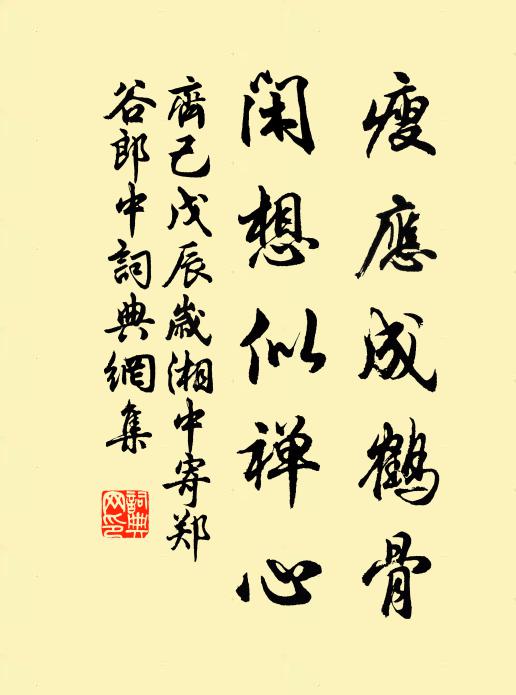 瘦應成鶴骨
閑想似禅心
齊己戊辰歲湘中寄郑
谷郎中詞典網集
詞典
网印